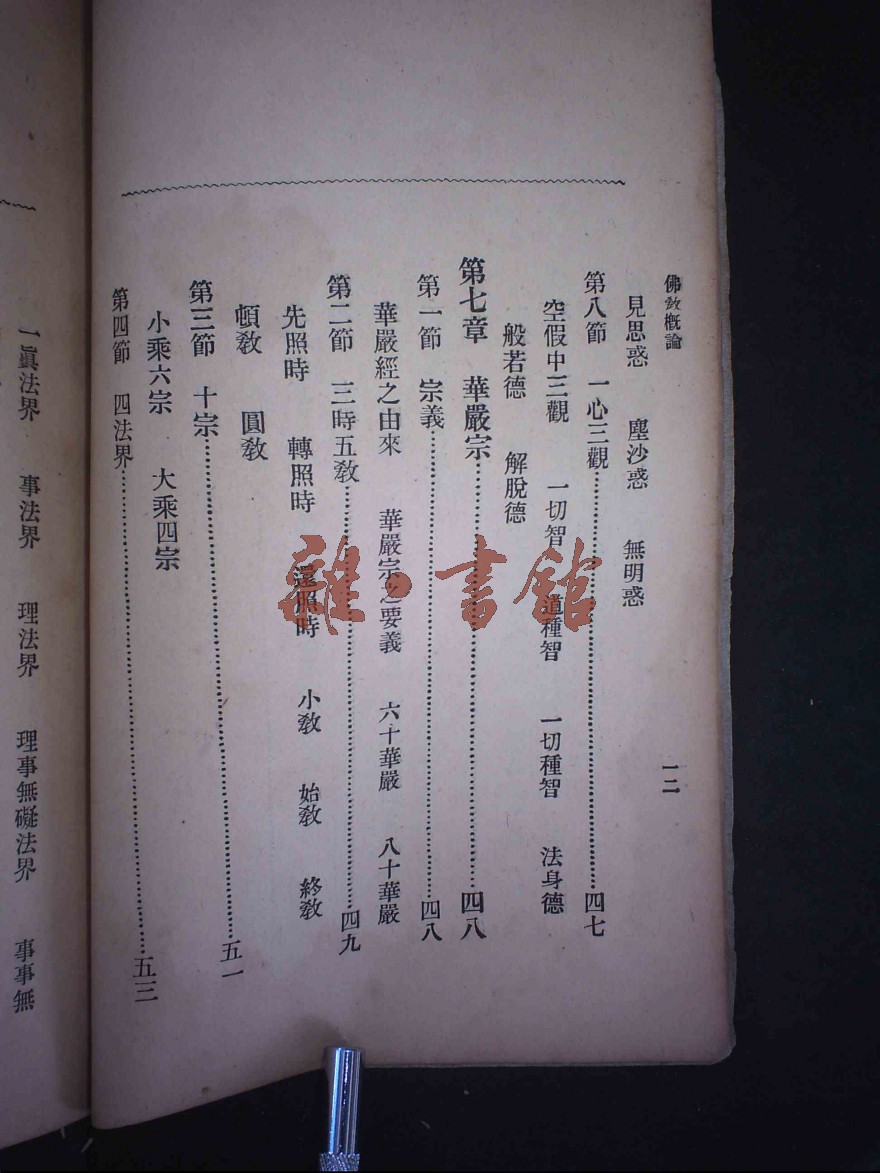 佛敎概論　一二
見思惑　塵沙惑　無明惑
第八節　一心三觀……四七
空假中三觀　一切智　道種智　一切種智　法身德
般若德　解脫德
第七章　華嚴宗……四八
第一節　宗義……四八
華嚴經之由來　華嚴宗之要義　六十華嚴　八十華嚴
第二節　三時五敎……四九
先照時　轉照時　還照時　小敎　始敎　終敎
頓敎　圓敎
第三節　十宗……五一
小乘六宗　大乘四宗
第四節　四法界……五三
一眞法界　事法界　理法界　理事無礙法界　事事無
雜·書館